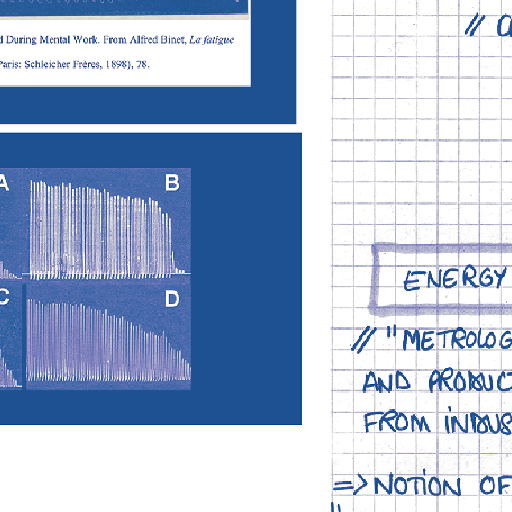 d During Mental Work. From Alfred Binet, La fatigue
Paris: Schleicher Frères, 1898), 78.
A
B
C
D
//
ENERGY
// "METROLOG
AND PRODUCT
FROM INDUS
=> NOTION OF
"